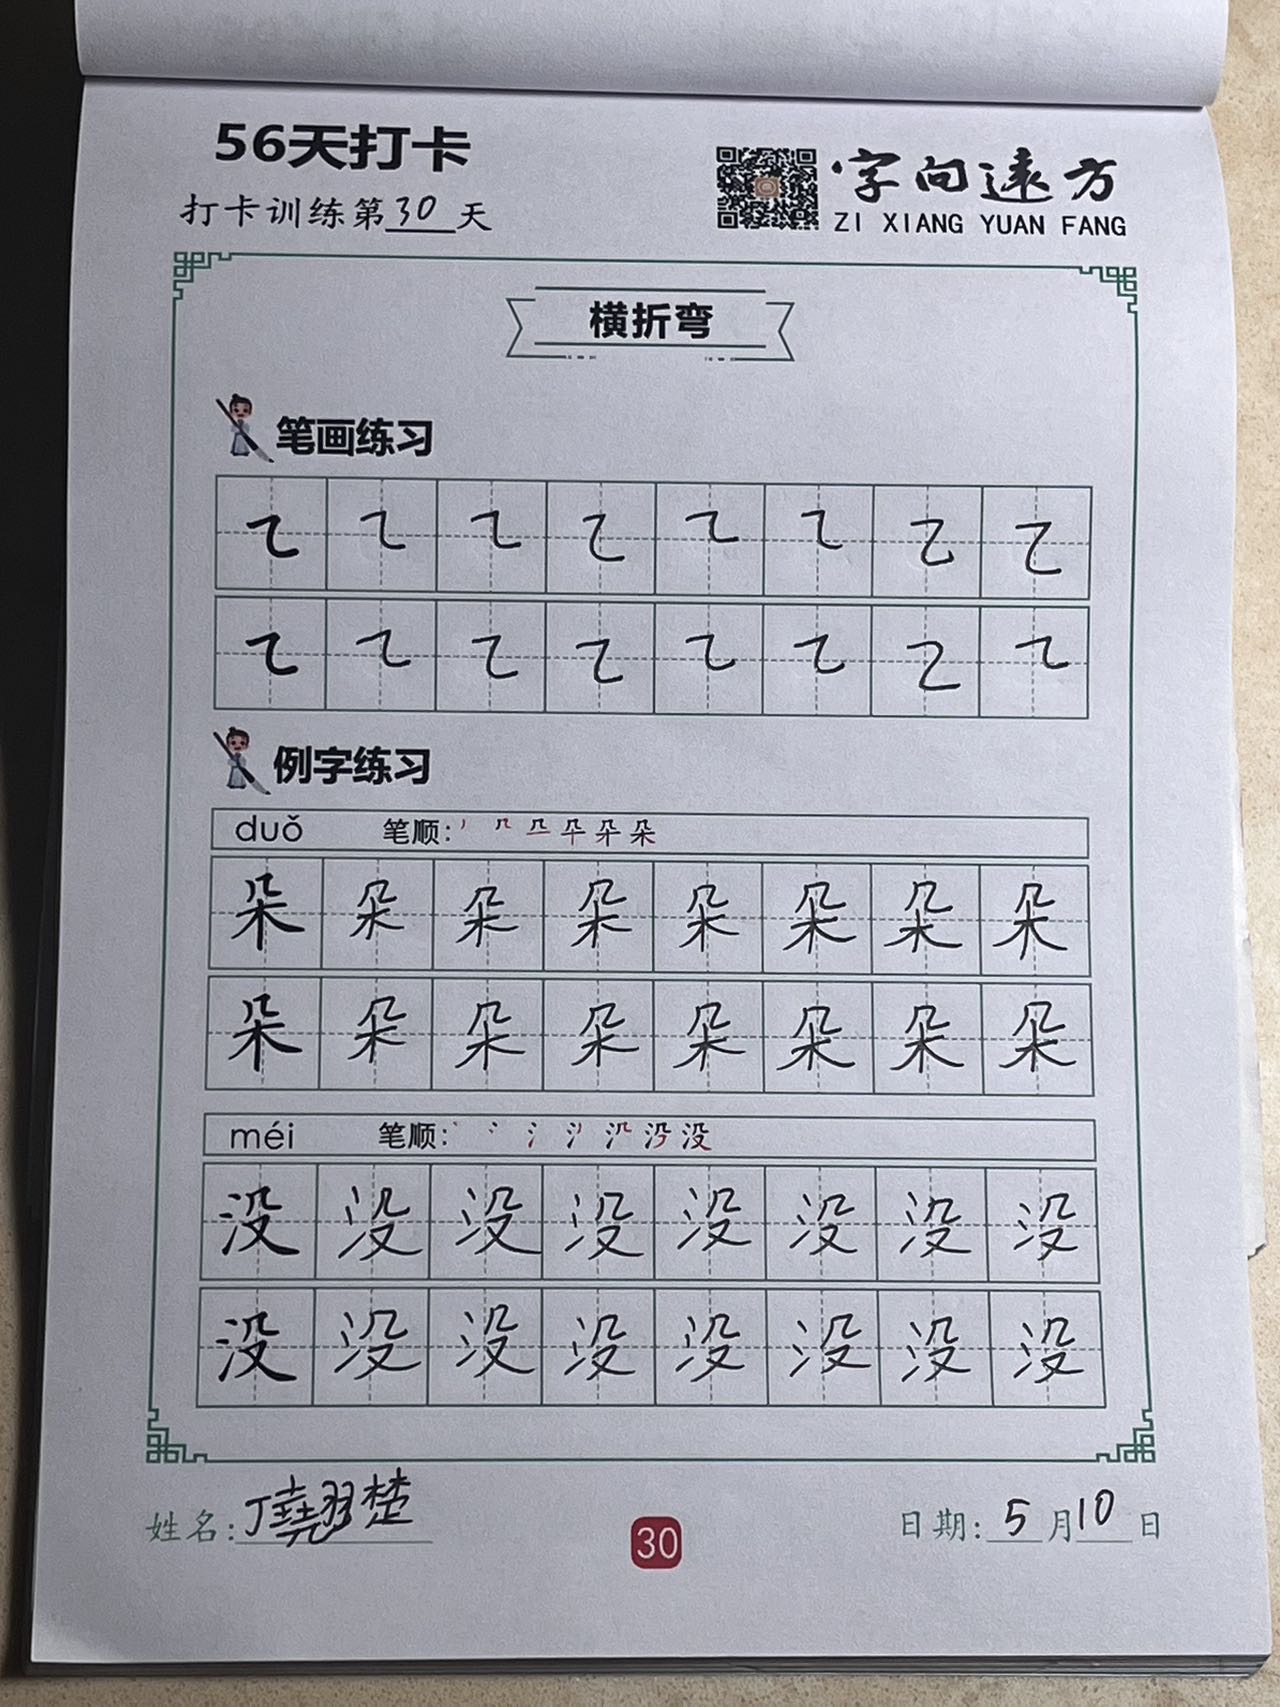 56天打卡
打卡训练第30天
字向远方
ZI XIANG YUAN FANG
横折弯
笔画练习
㇍ ㇍ ㇍ ㇍ ㇍ ㇍ ㇍ ㇍
㇍ ㇍ ㇍ ㇍ ㇍ ㇍ ㇍ ㇍
例字练习
duǒ 笔顺:
朵 朵 朵 朵 朵 朵 朵 朵
朵 朵 朵 朵 朵 朵 朵 朵
méi 笔顺:
没 没 没 没 没 没 没 没
没 没 没 没 没 没 没 没
姓名:丁翹楚
30
日期:5月10日